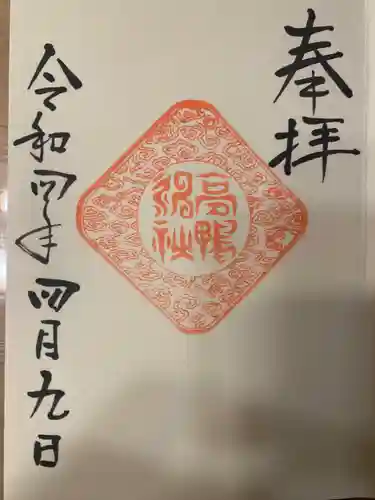 奉拝
高鴨
神社
令和四年四月九日